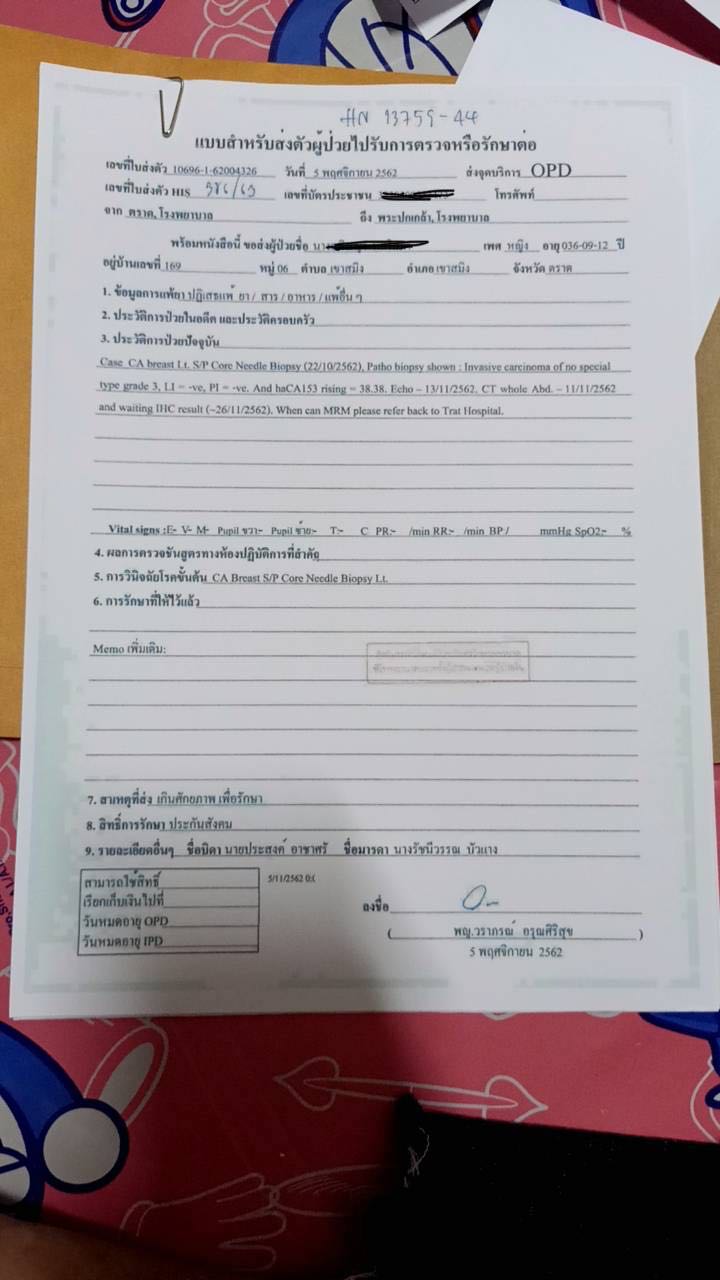 HN 13759-44
แบบสำหรับส่งตัวผู้ป่วยไปรับการตรวจหรือรักษาต่อ
เลขที่ใบส่งตัว 10696-1-62004326 วันที่ 5 พฤศจิกายน 2562 ส่งจุดบริการ OPD
เลขที่ใบส่งตัว HIS เลขที่บัตรประชาชน โทรศัพท์
จาก ตราด, โรงพยาบาล ถึง พระปกเกล้า, โรงพยาบาล
พร้อมหนังสือนี้ ขอส่งผู้ป่วยชื่อ นาง เพศ หญิง อายุ 036-09-12 ปี
อยู่บ้านเลขที่ 169 หมู่ 06 ตำบล เขาสมิง อำเภอ เขาสมิง จังหวัด ตราด
1. ข้อมูลการแพ้ยา ปฏิเสธแพ้ ยา / สาร / อาหาร / แพ้อื่น ๆ
2. ประวัติการป่วยในอดีต และประวัติครอบครัว
3. ประวัติการป่วยปัจจุบัน
Case CA breast Lt. S/P Core Needle Biopsy (22/10/2562), Patho biopsy shown : Invasive carcinoma of no special
type grade 3, LI = -ve, PI = -ve. And haCA153 rising = 38.38. Echo – 13/11/2562, CT whole Abd. – 11/11/2562
and waiting IHC result (~26/11/2562). When can MRM please refer back to Trat Hospital.
Vital signs :E- V- M- Pupil ขวา:- Pupil ซ้าย:- T:- C PR:- /min RR:- /min BP:/ mmHg SpO2:- %
4. ผลการตรวจชันสูตรทางห้องปฏิบัติการที่สำคัญ
5. การวินิจฉัยโรคขั้นต้น CA Breast S/P Core Needle Biopsy Lt.
6. การรักษาที่ให้ไว้แล้ว
Memo เพิ่มเติม:
7. สาเหตุที่ส่ง เกินศักยภาพ เพื่อรักษา
8. สิทธิ์การรักษา ประกันสังคม
9. รายละเอียดอื่นๆ ชื่อบิดา นายประสงค์ อาชาศรี ชื่อมารดา นางรัชนีวรรณ บัวแถง
สามารถใช้สิทธิ์ 5/11/2562 0:(
เรียกเก็บเงินไปที่
วันหมดอายุ OPD
วันหมดอายุ IPD
ลงชื่อ
( พญ.วราภรณ์ อรุณศิริสุข )
5 พฤศจิกายน 2562